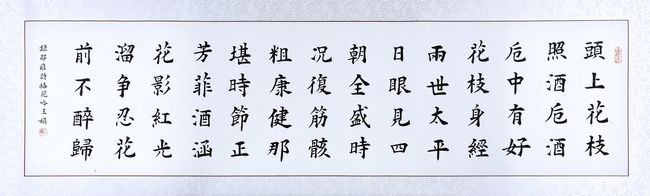 頭上花枝
照酒卮酒
卮中有好
花枝身經
兩世太平
日眼見四
朝全盛時
況復筋骸
粗康健那
堪時節正
芳菲酒涵
花影紅光
溜争忍花
前不醉歸
錄邵雍詩插花吟王娟